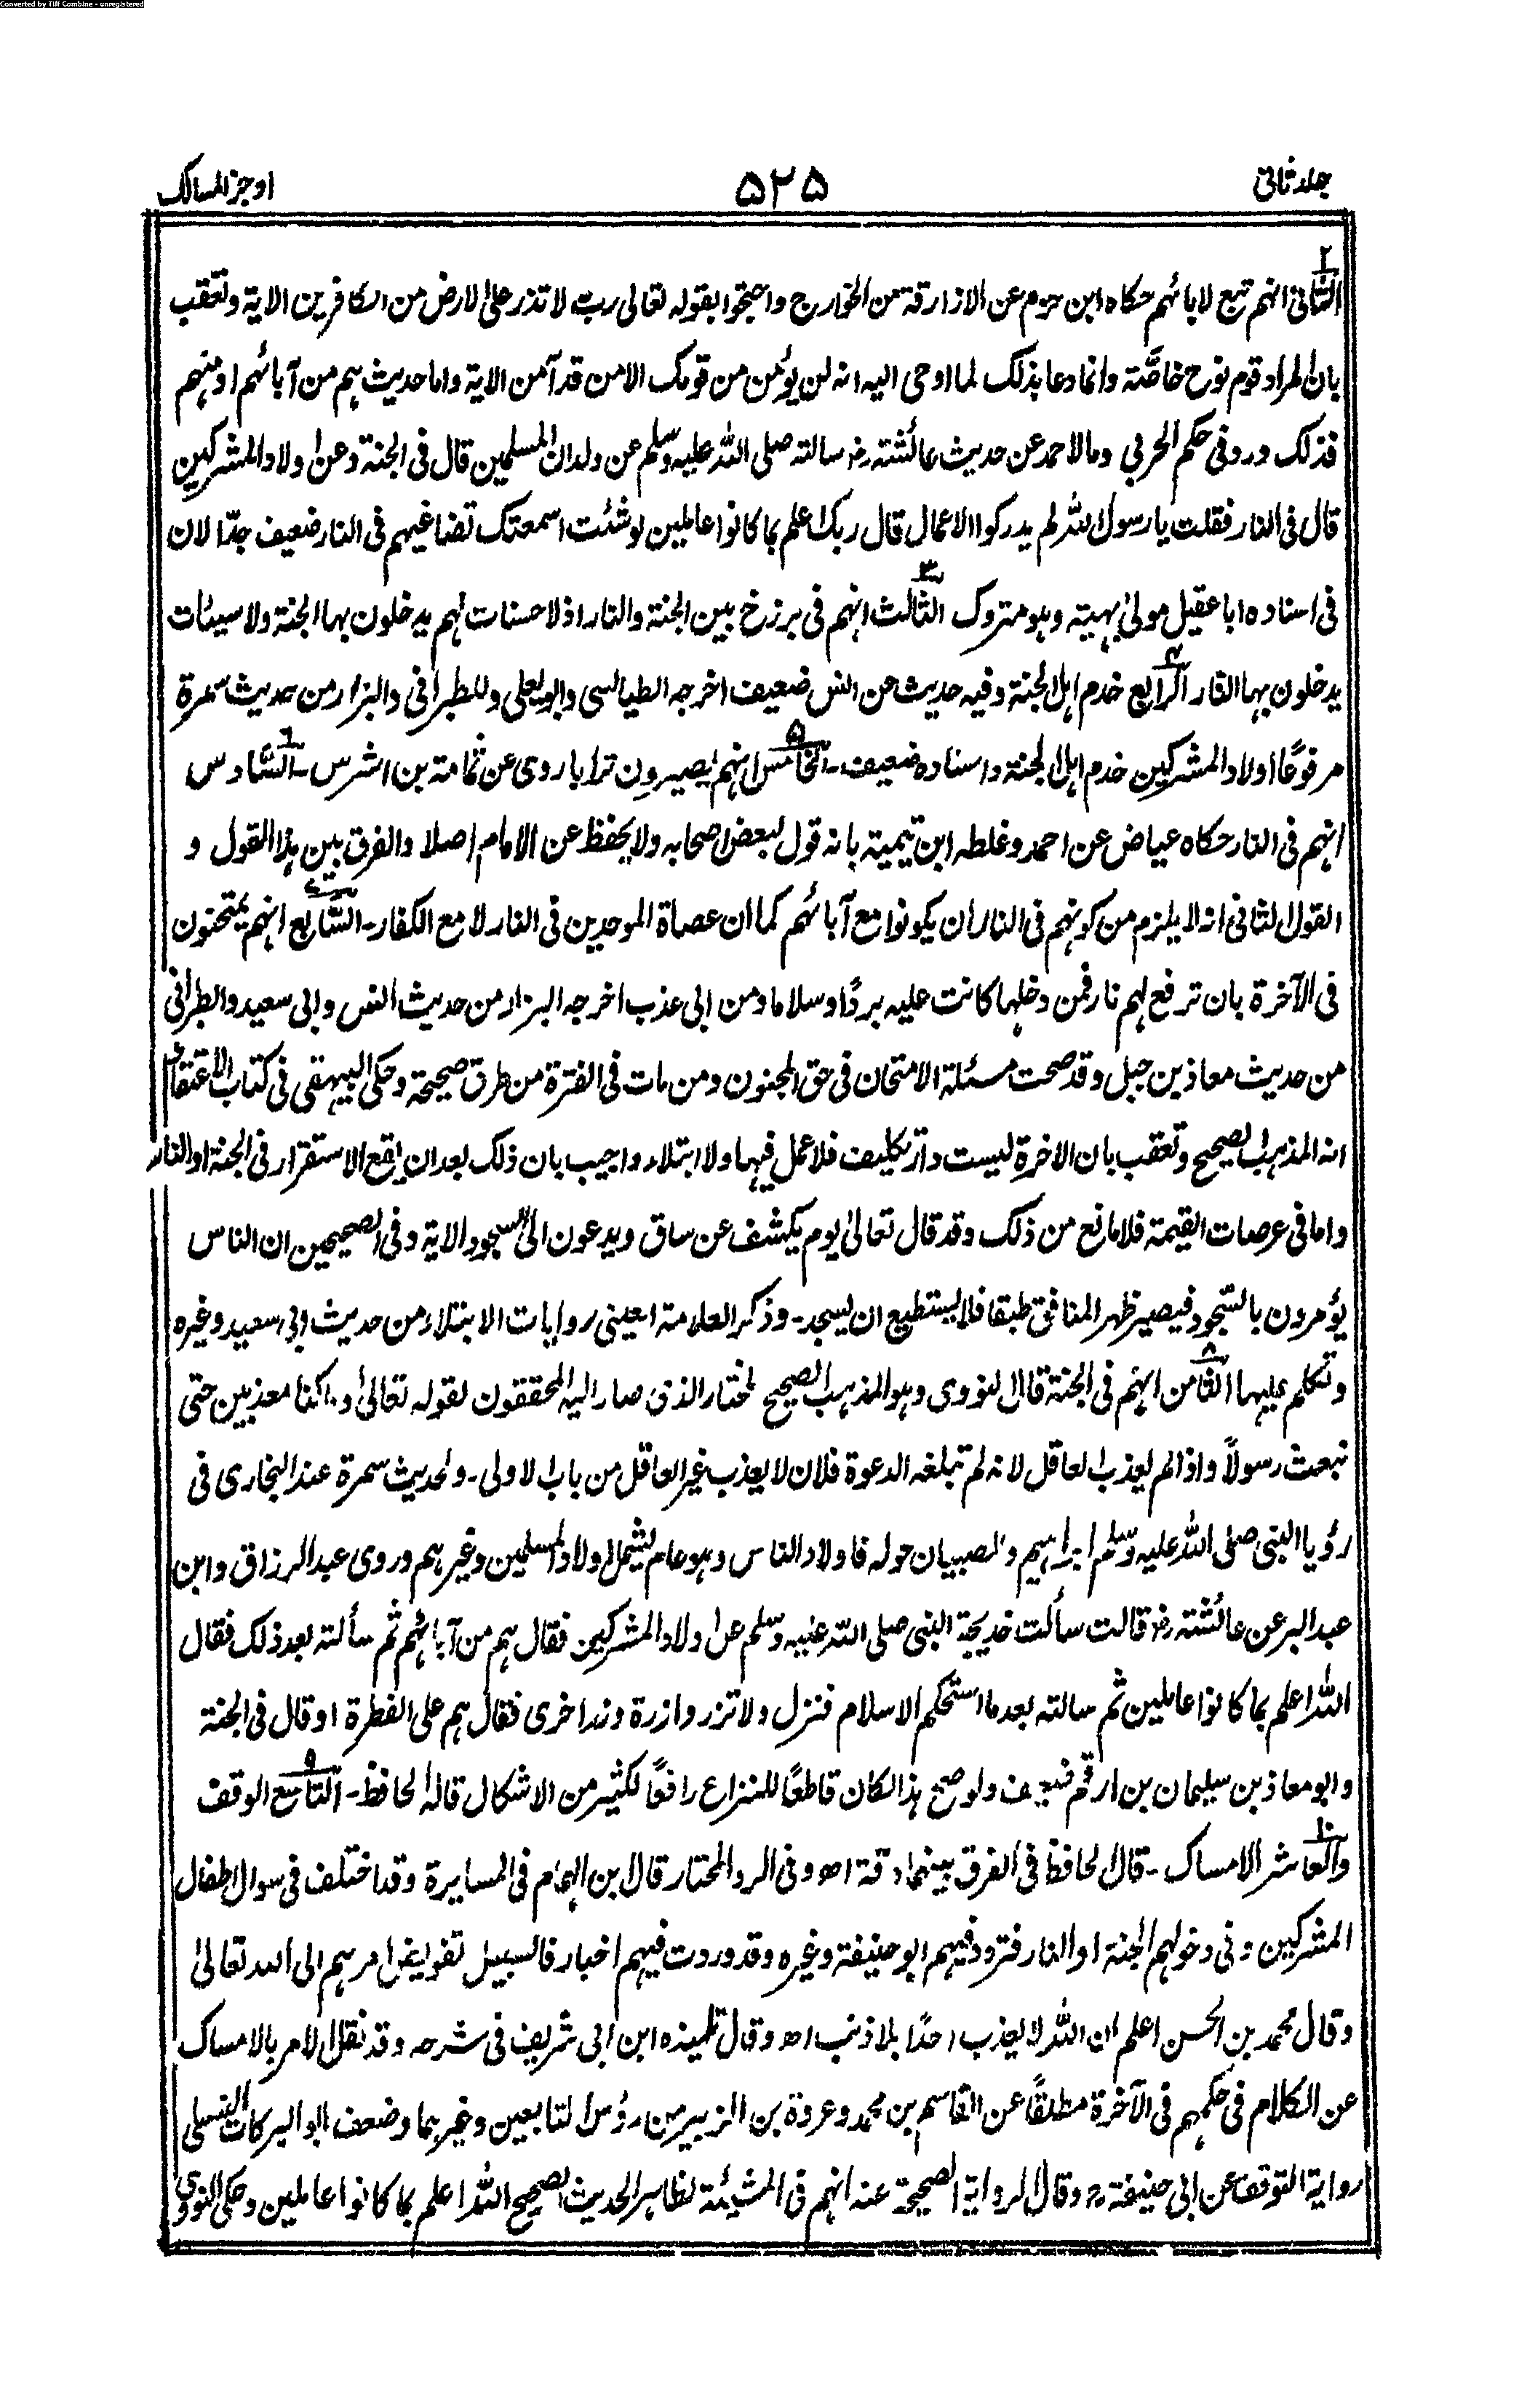 Converted by Tiff Combine - unregistered
جلد ثانی
۵۲۵
اوجز المسالک
۲
الثانی انہم تبع لابائہم حکاہ ابن حزم عن الازارقۃ من الخوارج واحتجوا بقولہ تعالی رب لا تذر علی الارض من الکافرین الایۃ وتعقب
بان المراد قوم نوح خاصّۃ وانما دعا بذلک لما اوحی الیہ انہ لن یؤمن من قومک الا من قد آمن الایۃ واما حدیث ہم من آبائہم او منہم
فذلک ورد فی حکم الحربی وما لاحمد عن حدیث عائشۃ رض سالتہ صلی اللہ علیہ وسلم عن ولدان المسلمین قال فی الجنۃ وعن اولاد المشرکین
قال فی النار فقلت یا رسول اللہ لم یدرکوا الاعمال قال ربک اعلم بما کانوا عاملین لو شئت اسمعتک تضاغیہم فی النار ضعیف جدّا لان
فی اسنادہ ابا عقیل مولیٰ بہیۃ وہو متروک الثالث ۳ انہم فی برزخ بین الجنۃ والنار اذ لا حسنات لہم یدخلون بہا الجنۃ ولا سیئات
یدخلون بہا النار الرابع ۴ خدم اہل الجنۃ وفیہ حدیث عن انس ضعیف اخرجہ الطیالسی وابو یعلی وللطبرانی والبزار من حدیث سمرۃ
مرفوعًا اولاد المشرکین خدم اہل الجنۃ واسنادہ ضعیف۔ الخامس ۵ انہم یصیرون ترابا روی عن ثمامۃ بن اشرس۔ السّادس ۶
انہم فی النار حکاہ عیاض عن احمد وغلطہ ابن تیمیۃ بانہ قول لبعض اصحابہ ولا یحفظ عن الامام اصلا والفرق بین ہذا القول و
القول الثانی انہ لا یلزم من کونہم فی النار ان یکونوا مع آبائہم کما ان عصاۃ الموحدین فی النار لا مع الکفار۔ السّابع ۷ انہم یمتحنون
فی الآخرۃ بان ترفع لہم نار فمن دخلہا کانت علیہ بردًا وسلاما ومن ابی عذب اخرجہ البزار من حدیث انس وابی سعید والطبرانی
من حدیث معاذ بن جبل وقد صحت مسئلۃ الامتحان فی حق المجنون ومن مات فی الفترۃ من طرق صحیحۃ وحکی البیہقی فی کتاب الاعتقاد
انہ المذہب الصحیح وتعقب بان الاخرۃ لیست دار تکلیف فلا عمل فیہا ولا ابتلاء واجیب بان ذلک بعد ان یقع الاستقرار فی الجنۃ او النار
واما فی عرصات القیمۃ فلا مانع من ذلک وقد قال تعالیٰ یوم یکشف عن ساق ویدعون الی السجود الایۃ وفی الصحیحین ان الناس
یؤمرون بالسّجود فیصیر ظہر المنافق طبقا فلا یستطیع ان یسجد۔ وذکر العلامۃ العینی روایات الابتلاء من حدیث ابی سعید وغیرہ
وتکلم علیہا الثامن ۸ انہم فی الجنۃ قال النووی وہو المذہب الصحیح المختار الذی صار الیہ المحققون لقولہ تعالیٰ وما کنا معذبین حتی
نبعث رسولًا واذا لم یعذب العاقل لانہ لم تبلغہ الدعوۃ فلان لا یعذب غیر العاقل من باب الاولی۔ ولحدیث سمرۃ عند البخاری فی
رؤیا النبی صلی اللہ علیہ وسلم ابراہیم والصبیان حولہ فاولاد الناس وہو عام یشمل اولاد المسلمین وغیرہم وروی عبد الرزاق وابن
عبد البر عن عائشۃ رض قالت سألت خدیجۃ النبی صلی اللہ علیہ وسلم عن اولاد المشرکین فقال ہم من آبائہم ثم سألتہ بعد ذلک فقال
اللہ اعلم بما کانوا عاملین ثم سالتہ بعد ما استحکم الاسلام فنزل ولا تزر وازرۃ وزر اخری فقال ہم علی الفطرۃ او قال فی الجنۃ
وابو معاذ بن سلیمان بن ارقم ضعیف ولو صح ہذا لکان قاطعًا للنزاع رافعًا لکثیر من الاشکال قالہ الحافظ۔ التاسع ۹ الوقف
والعاشر ۱۰ الامساک۔ قال الحافظ فی الفرق بینہما دقۃ اھ وفی الرد المحتار قال ابن الہمام فی المسایرۃ وقد اختلف فی سوال اطفال
المشرکین وفی دخولہم الجنۃ او النار فتردد فیہم ابو حنیفۃ وغیرہ وقد وردت فیہم اخبار فالسبیل تفویض امرہم الی اللہ تعالیٰ
وقال محمد بن الحسن اعلم ان اللہ لا یعذب احدًا بلا ذنب اھ وقال تلمیذہ ابن ابی شریف فی شرحہ وقد نقل الامر بالامساک
عن الکلام فی حکمہم فی الآخرۃ مطلقًا عن القاسم بن محمد وعروۃ بن الزبیر من رؤس التابعین وغیرہما وضعف ابو البرکات النسفی
روایۃ التوقف عن ابی حنیفۃ رح وقال الروایۃ الصحیحۃ عنہ انہم فی المشیئۃ لظاہر الحدیث الصحیح اللہ اعلم بما کانوا عاملین وحکی النووی